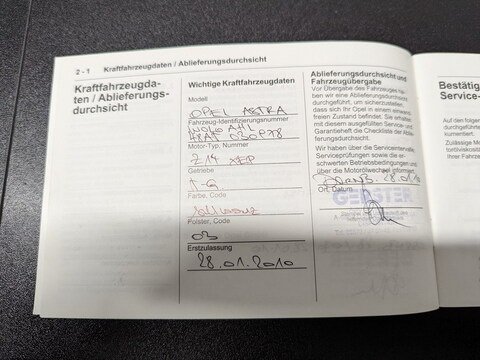 2 - 1 Kraftfahrzeugdaten / Ablieferungsdurchsicht
Kraftfahrzeugda-
ten / Ablieferungs-
durchsicht
Wichtige Kraftfahrzeugdaten
Modell
OPEL ASTRA
Fahrzeug-Identifizierungsnummer
Motor-Typ, Nummer
Z14 XEP
Getriebe
Farbe, Code
schwarz
Polster, Code
03
Erstzulassung
28.01.2010
Ablieferungsdurchsicht und
Fahrzeugübergabe
Vor Übergabe des Fahrzeuges ha-
ben wir eine Ablieferungsdurchsicht
durchgeführt, um sicherzustellen,
dass sich Ihr Opel in einem einwand-
freien Zustand befindet. Sie erhalten
mit diesem ausgefüllten Service- und
Garantieheft die Checkliste der Ablie-
ferungsdurchsicht.
Wir haben über die Serviceintervalle,
Serviceprüfungen sowie die er-
schwerten Betriebsbedingungen und
über die Motorölwechsel informiert.
Ort, Datum
GERSTER
Bestätig
Service-
Auf den folge
umentiert.
Zulässige Mo
torölviskosität
Ihrer Fahrze